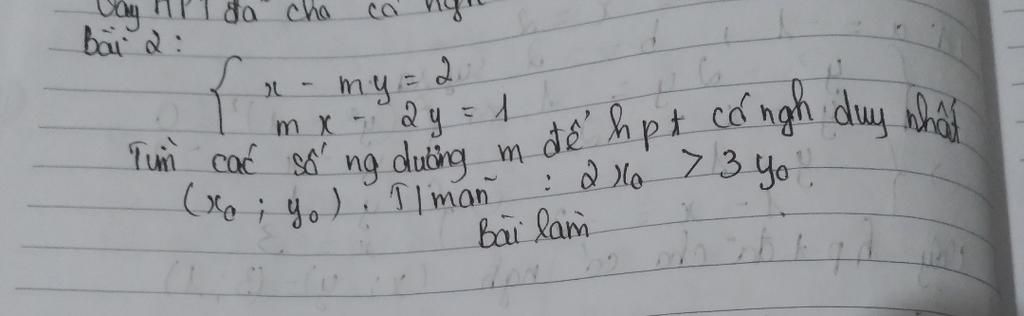 Vậy HPT đã cho có ngh
Bài 2:
x - my = 2
mx - 2y = 1
Tìm các số ng dương m để hpt có ngh duy nhất
(x₀ ; y₀). T/mãn : 2x₀ > 3y₀.
Bài làm